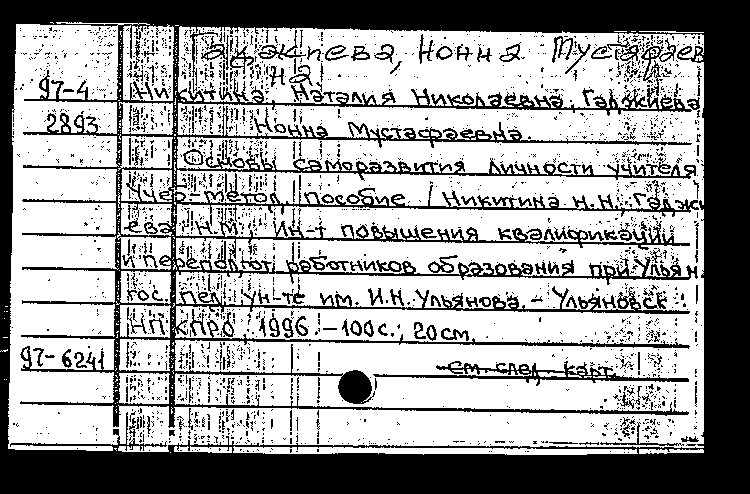 Гаджиева, Нонна Мустафаев
на
97-4 Никитина, Наталия Николаевна, Гаджиева
2893 Нонна Мустафаевна.
Основы саморазвития личности учителя
Учеб-метод. пособие / Никитина Н.Н., Гаджи
ева Н.М.; Ин-т повышения квалификации
и переподгот. работников образования при Ульян.
гос. пед. ун-те им. И.Н. Ульянова. - Ульяновск :
ИПКПРО, 1996. - 100 с.; 20 см.
97-6241 см. след. карт.